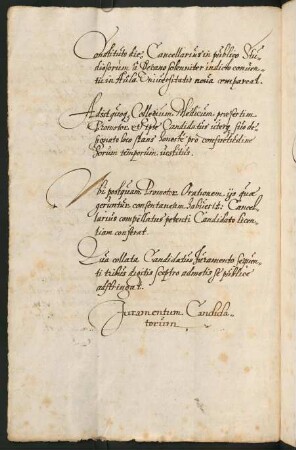 Constituto die, Cancellarius in publico Stu-
diosorum à Decano solenniter indicto conven-
tu in Aula Universitatis nova compareat.
Adsitque Collegium Medicum praesertim
Promotor et ipse Candidatus uterque suo de-
signato loco stans honeste pro consuetudine
horum temporum vestitus.
Ubi postquam Promotor Orationem, ijs quae
geruntur consentaneam habuerit: Cancel-
larius compellatus petenti Candidato licen-
tiam conferat.
Qua collata Candidatus Juramento sequen-
ti tribus digitis sceptro admotis se publice
adstringat.
Juramentum Candida-
torum